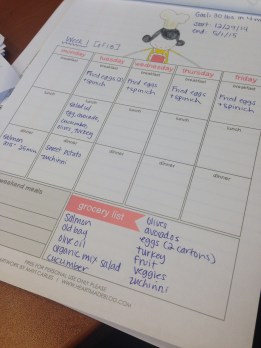 Goal: 30 lbs in
start: 12/29/14
end: 5/1/15
Week 1
monday
tuesday
wednesday
thursday
friday
breakfast
breakfast
breakfast
breakfast
breakfast
Fried eggs
+ spinach
Fried eggs
+ spinach
Fried eggs
+ spinach
Fried eggs
+ spinach
lunch
lunch
lunch
lunch
lunch
salad of
egg, avocado,
cucumber,
olive, turkey
dinner
dinner
dinner
dinner
dinner
salmon
sweet potato
zucchini
weekend meals
grocery list
salmon
old bay
olive oil
organic mix salad
cucumber
olives
avocados
eggs (2 cartons)
turkey
fruit
veggies
zuchinni
FREE FOR PERSONAL USE ONLY. PLEASE